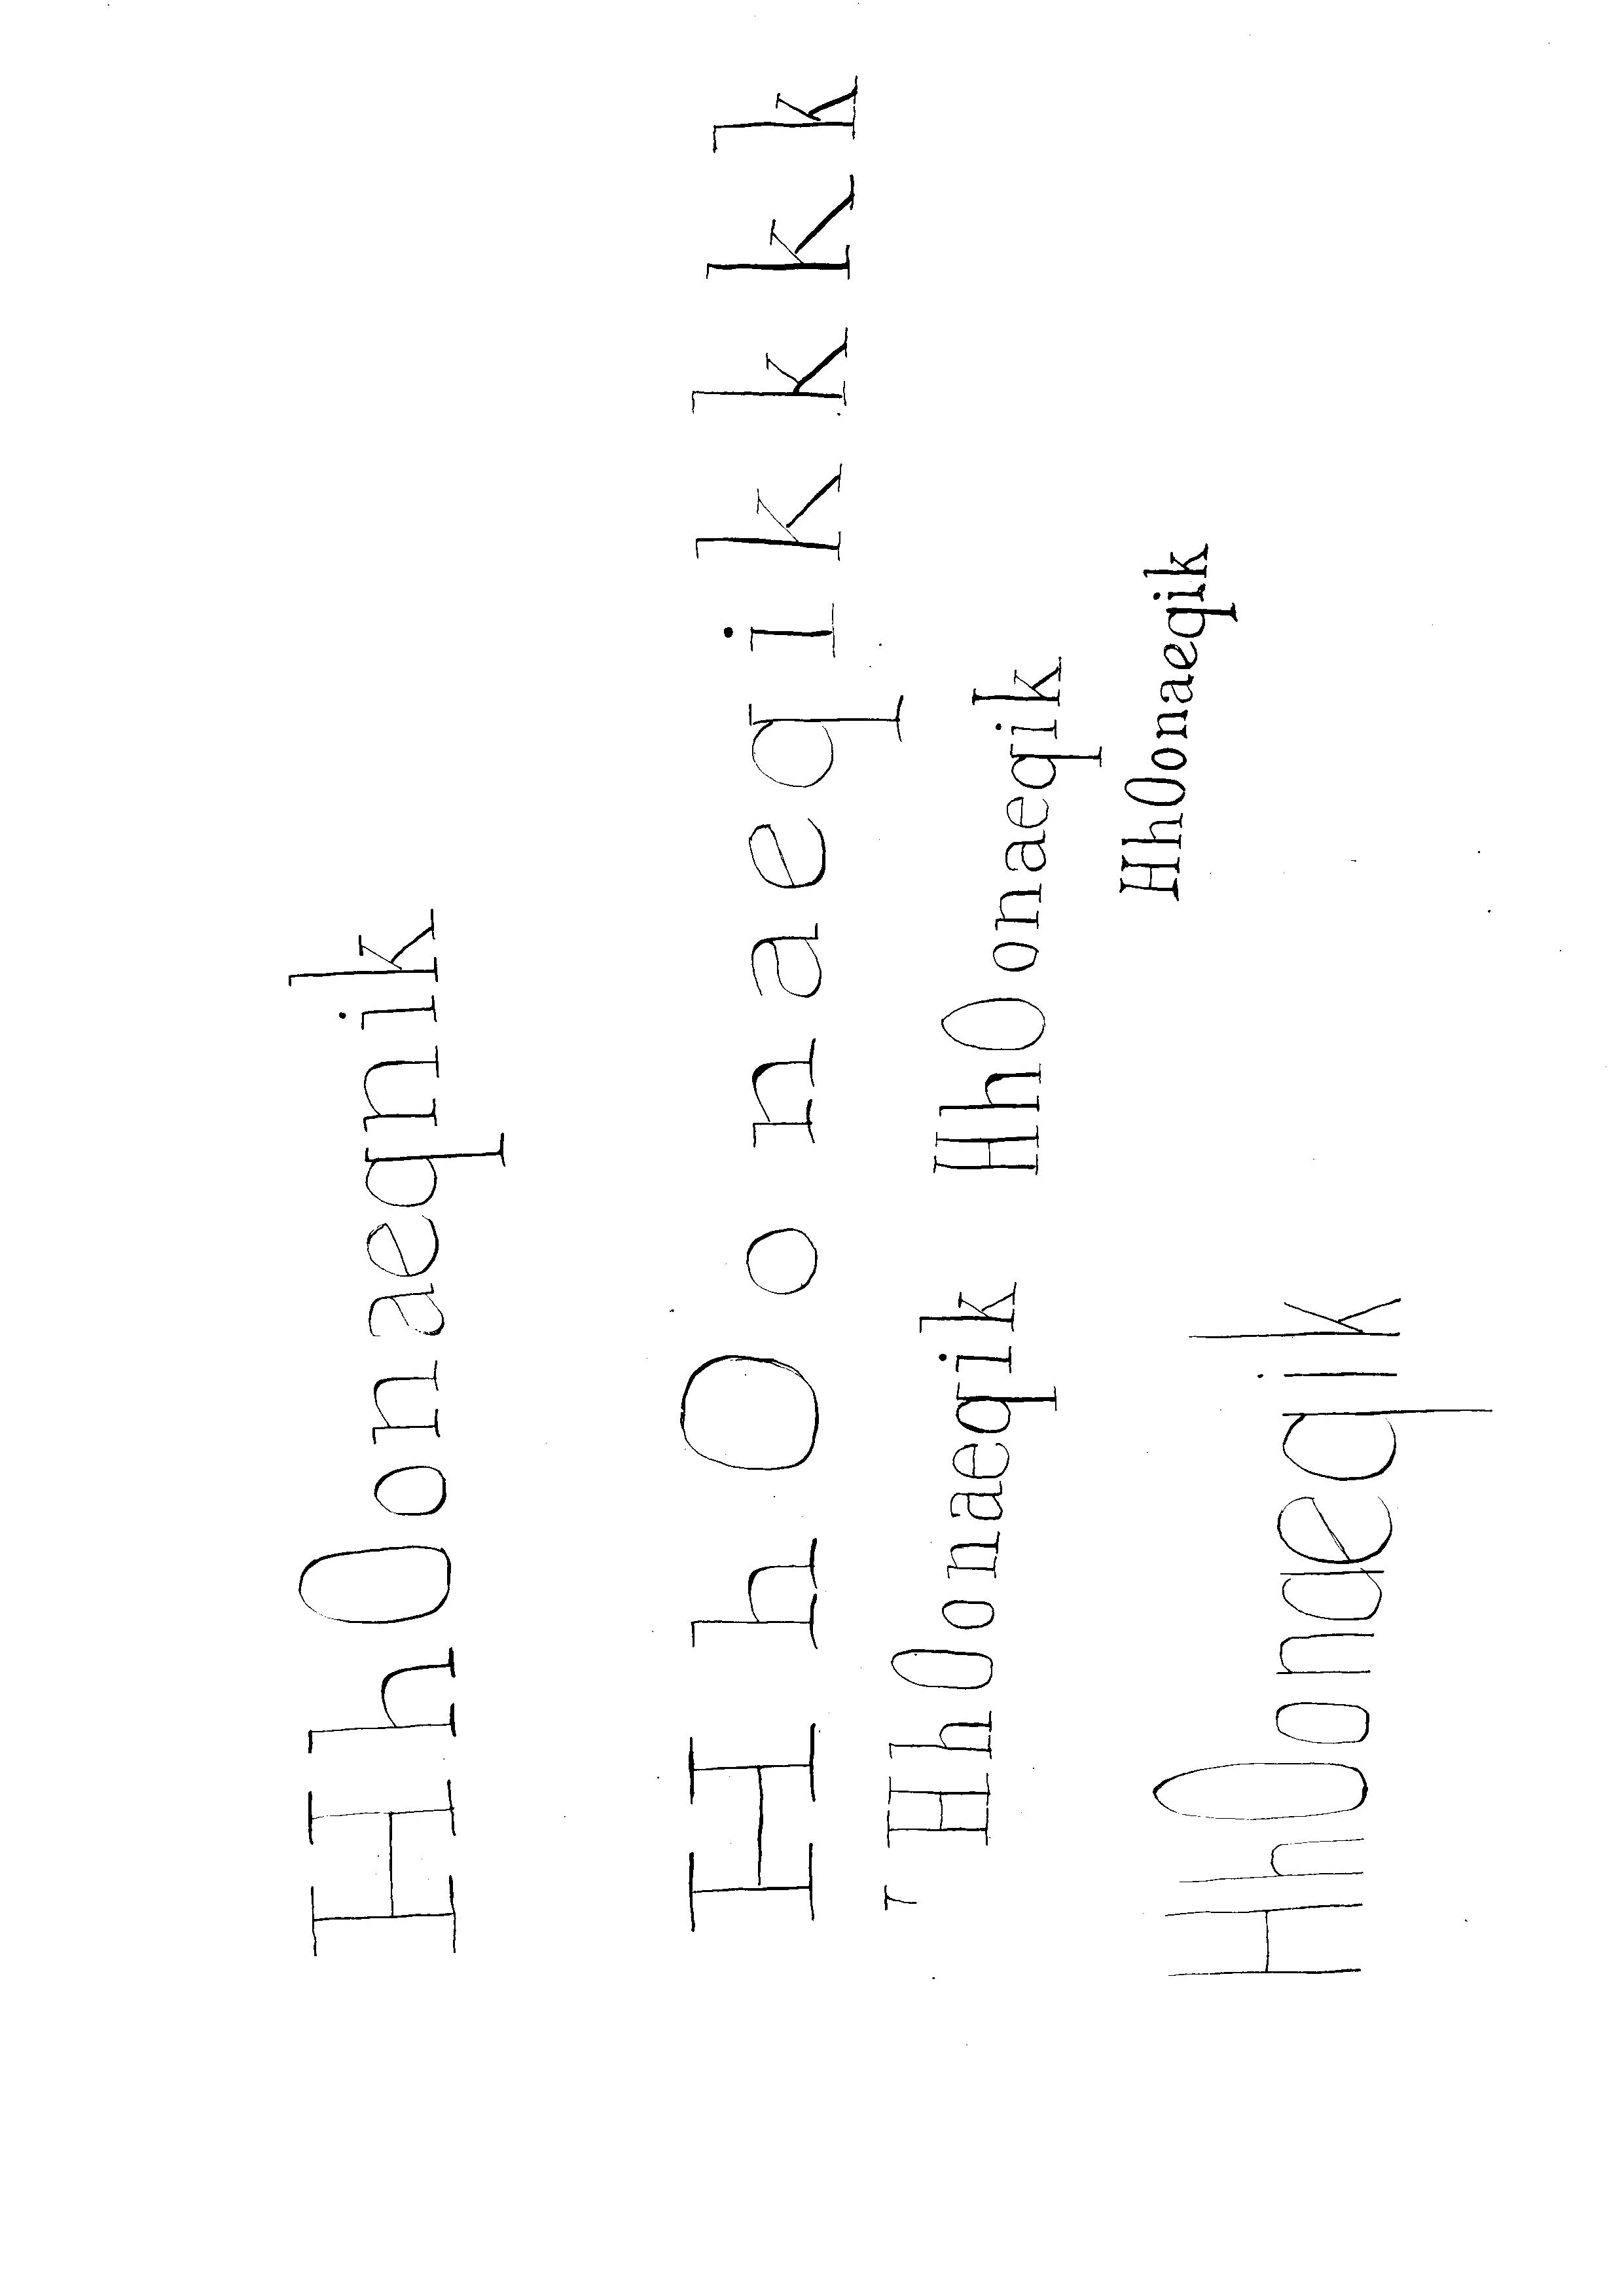 HhOonaeqnik
H h O o n a e q i k k k k
HhOonaeqik HhOonaeqik
HhOonaeqik
HhOonaeqik